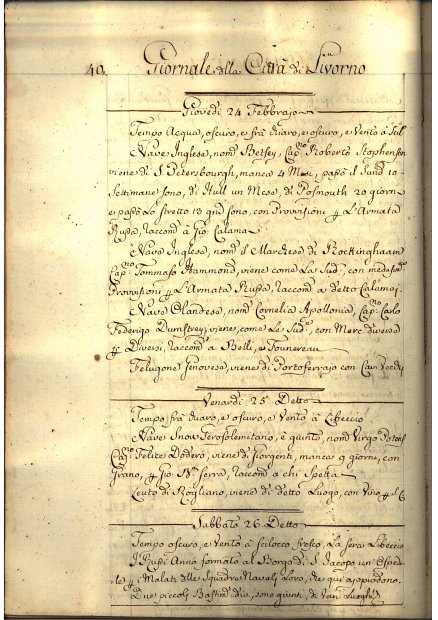 40. Giornale della Città di Livorno
Giovedi 24 Febbrajo
Tempo Acqua, oscuro, e frà chiaro, e oscuro, e Vento a Scil
Nave Inglese, nom^a Betsey, Cap^no Roberto Stophenson
viene di S. Petersbourgh, manca 4 Mesi, passò il Sund 10
Settimane sono, di Hull un Mese, di Posmouth 20 giorni
e passò Lo Stretto 13 qui sono, con Provvisioni p L'Armata
Russa, raccom^a a Gio: Calamai
Nave Inglese, nom^a S. Marchese di Rockinghaam
Cap^no Tommaso Hammond, viene come La Sud^a, con medesime
Provvisioni p L'Armata Russa, raccom^a a detto Calamaj.
Nave Olandese, nom^a Cornelia Apollonia, Cap^no Carlo
Federigo Dumstrey, viene, come Le Sud^e, con Merc^e diverse
p Diversi, raccom^a a Belli, e Founereau
Felugone Genovese, viene di Portoferrajo con
Venardi 25 Detto
Tempo frà chiaro, e oscuro, e Vento à Libeccio
Nave Snow Gerosolemitano, è giunto, nom^a Virgo Potens
Cap^no Felice Dodero, viene di Giorgenti, manca 9 giorni, con
Grano, p Gio: B^a Serra, raccom^a a chi Spetta
Leuto di Rogliano, viene di detto Luogo, con Vino p il C
Sabbato 26 Detto
Tempo oscuro, e Vento à scilocco fresco, La sera Libeccio
I Russi Anno formato al Borgo di S. Jacopo un Ospeda
le p i Malati delle Squadre Navali Loro, che qui approdono.
Due piccoli Bastim^ti sono giunti, di Vicin' Luoghi